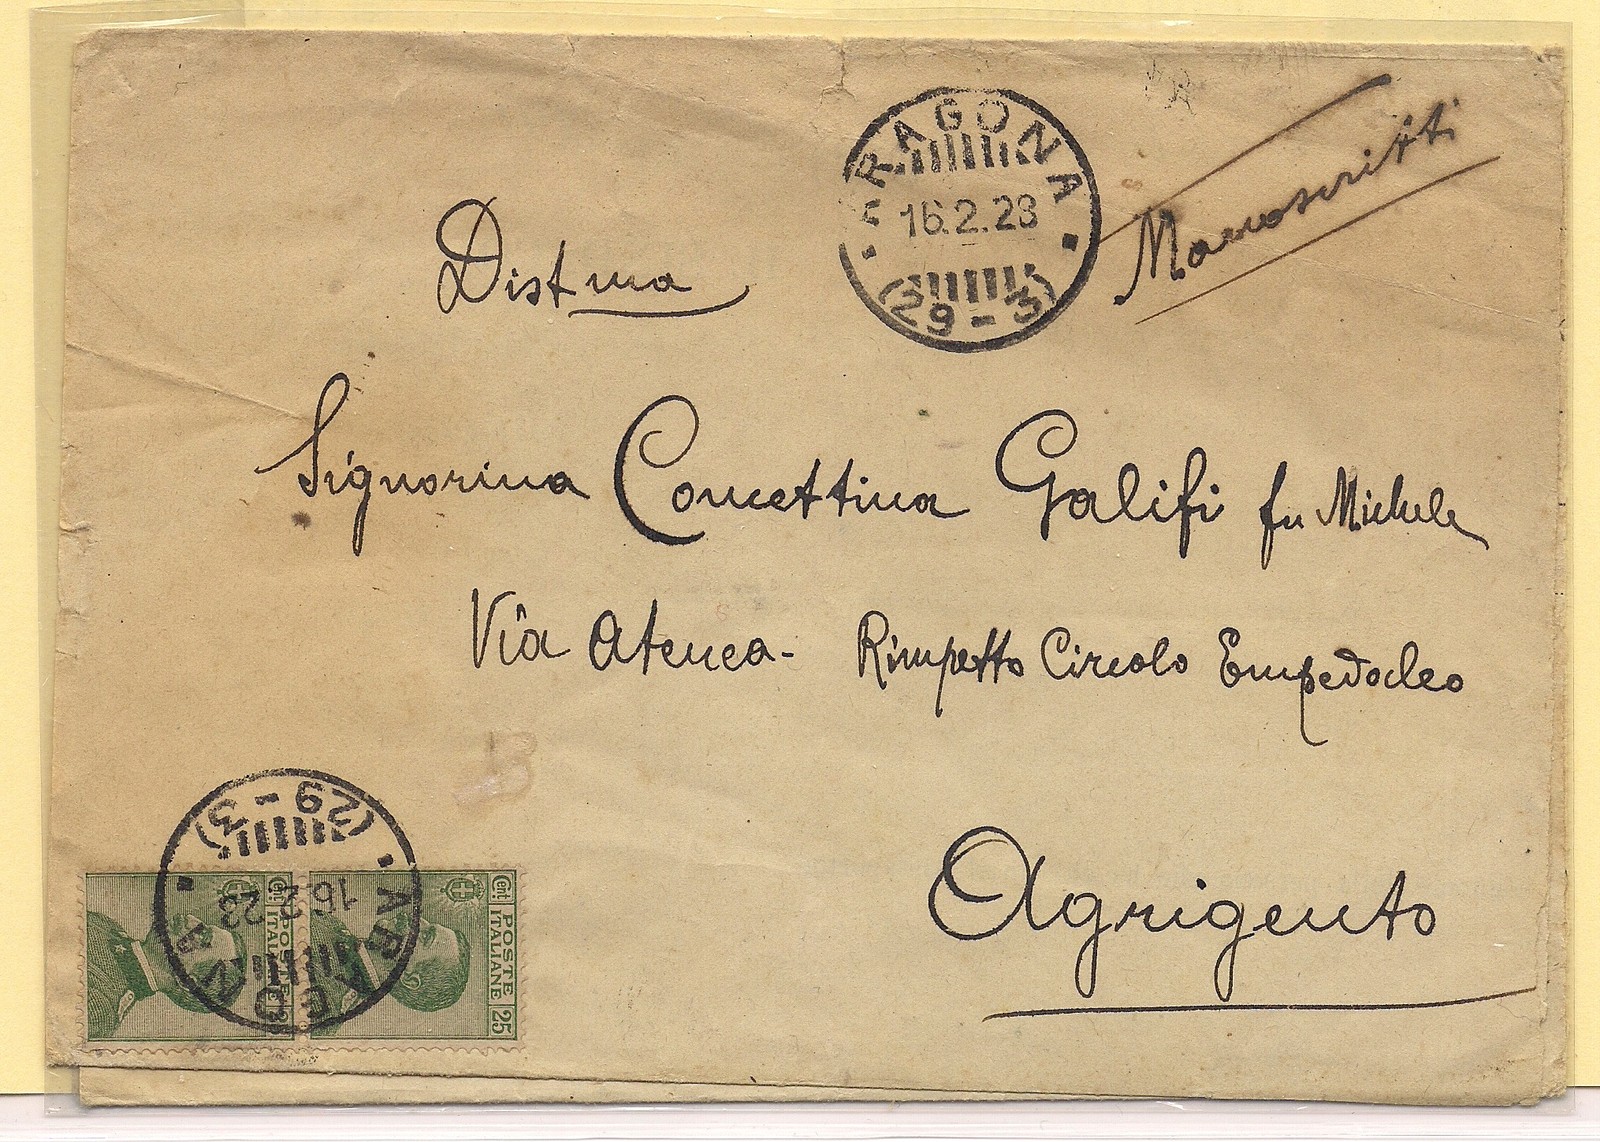 ARAGONA
16.2.28
(29-3)
Manoscritti
Dist ma
Signorina Concettina Galifi fu Michele
Via Atenea - Rimpetto Circolo Empedocleo
Agrigento
ARAGONA
16.2.28
(29-3)
POSTE ITALIANE
Cent 25
POSTE ITALIANE
Cent 25